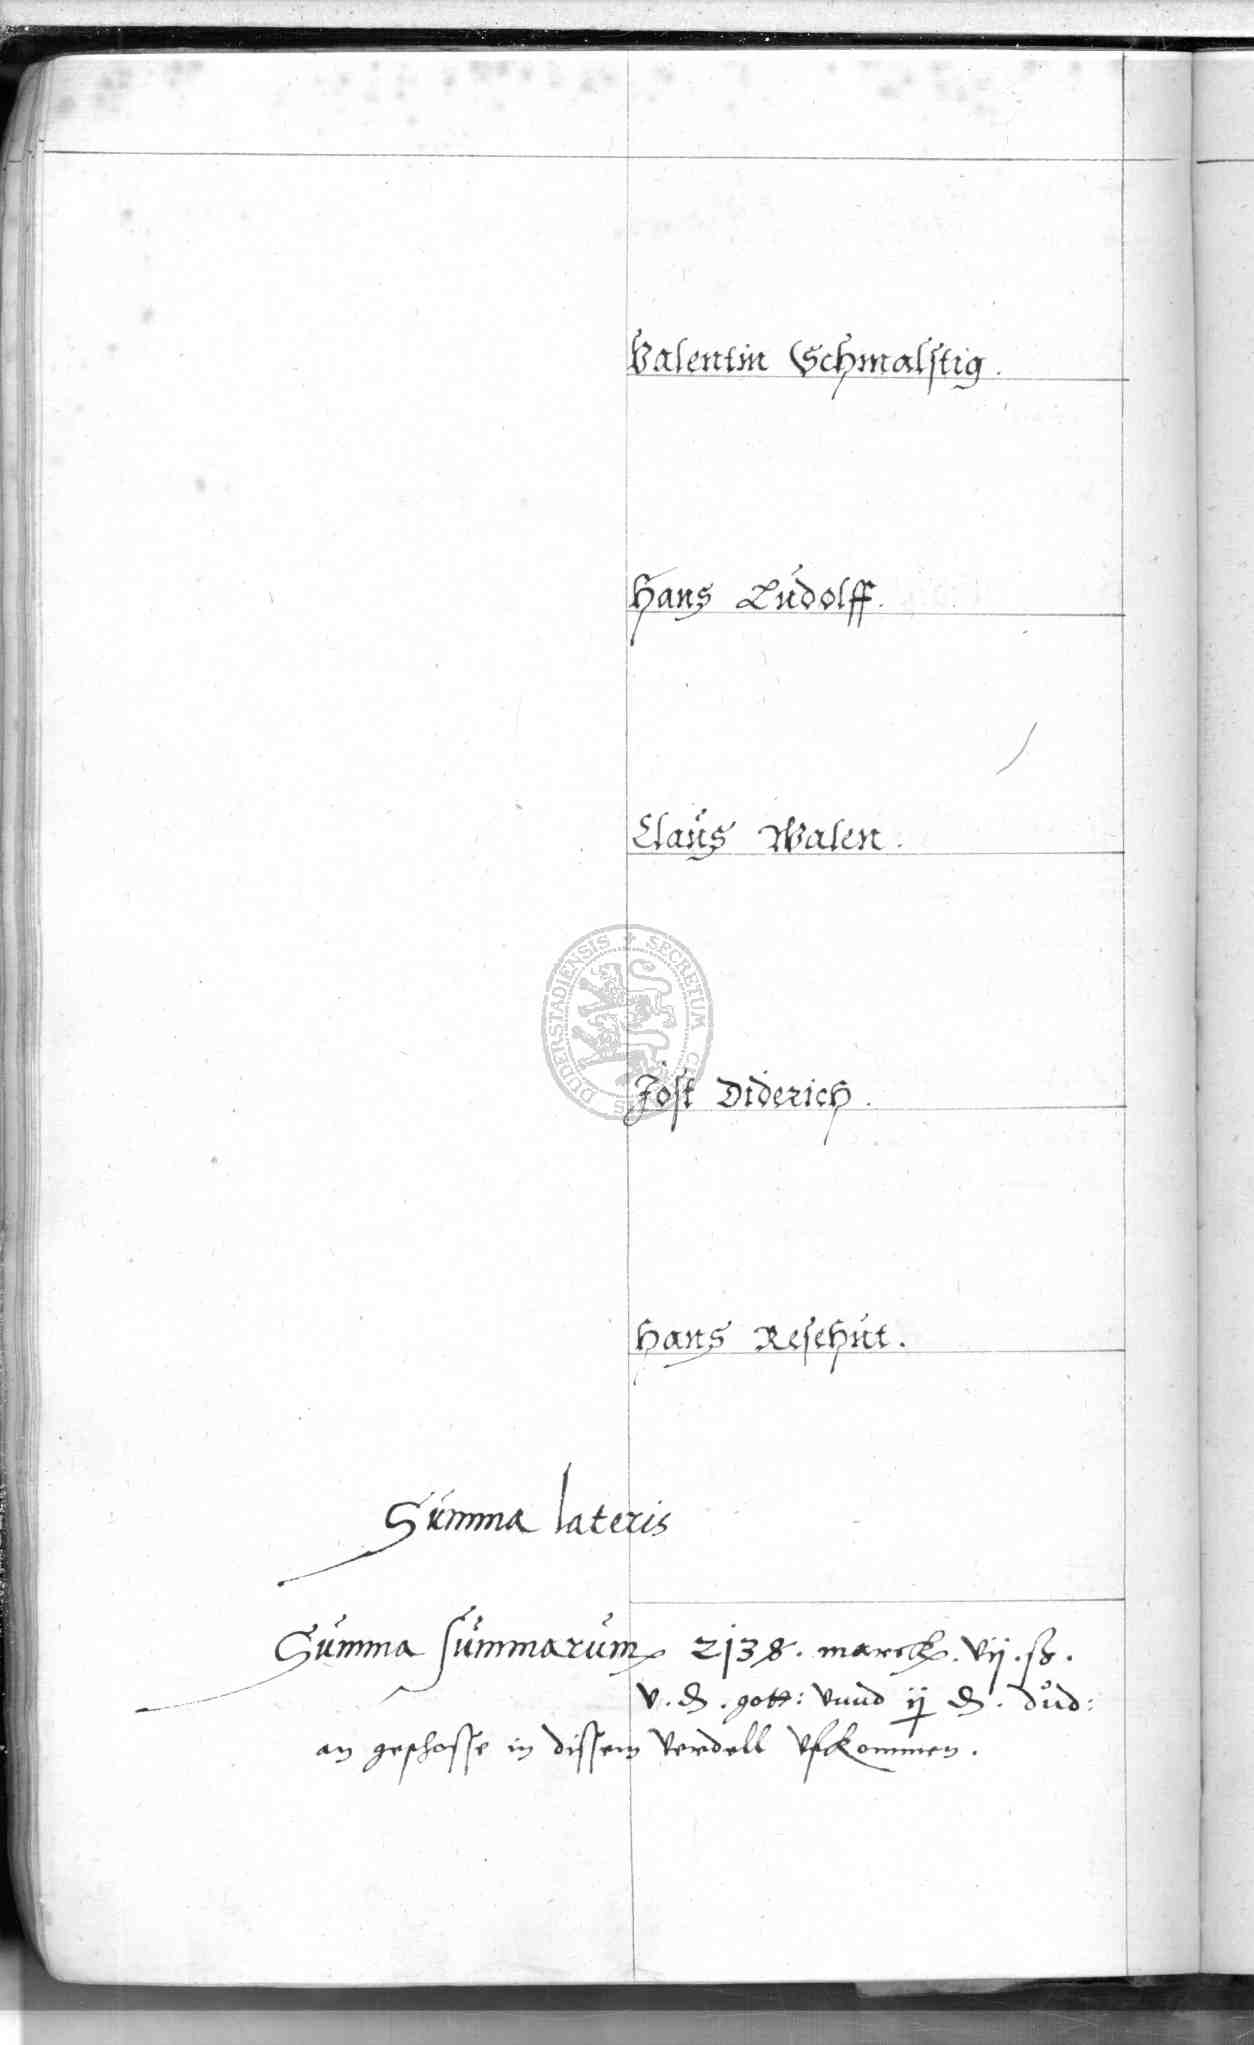 Valentin Schmalstig.
Hans Ludolff.
Claus Walen.
DUDERSTADIENSIS + SECRETUM
Jost Diderich.
Hans Resehut.
Summa lateris
Summa summarum 2138. marck. vij. ß.
v. ₰. gott: vnnd ij ₰. dud:
an geschosse in dissem verdell vfkommen.